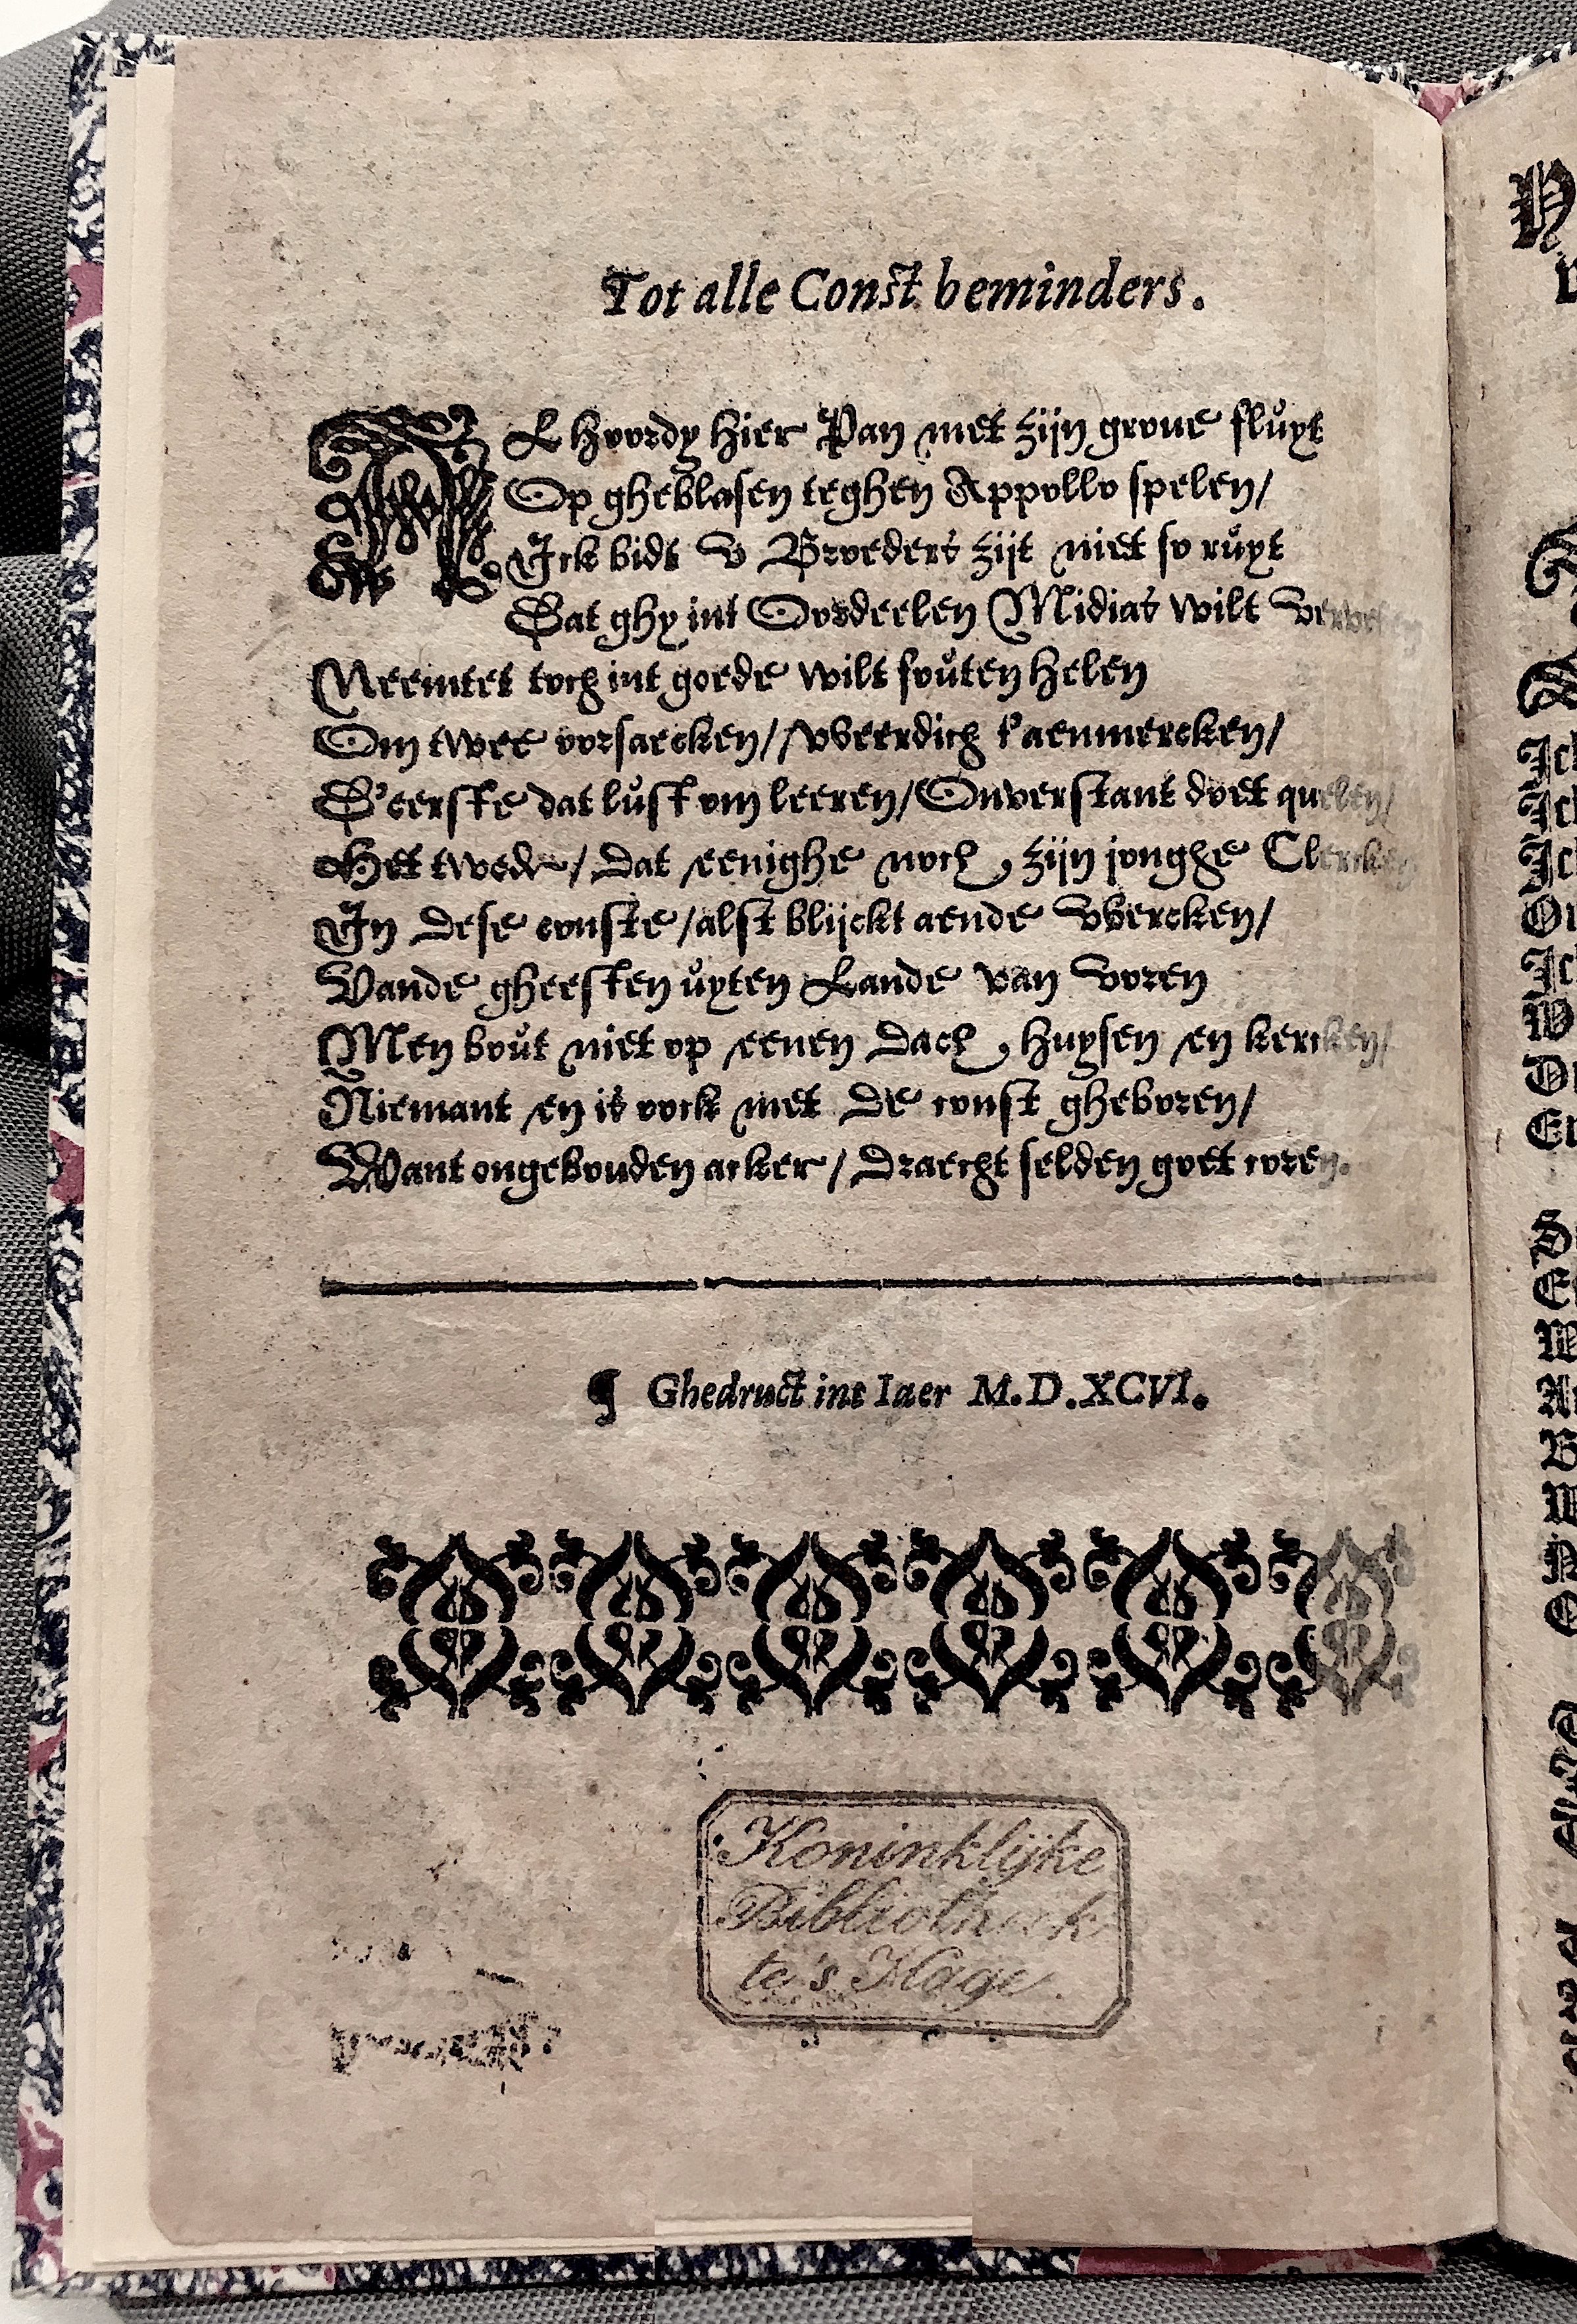 Tot alle Const beminders.
AL hoordy hier Pan met zijn groue fluyt
Op gheblasen teghen Appollo spelen/
Ick bidt v Broeders zijt niet so ruyt
Dat ghy int Oordeelen Midias wilt
Neemtet toch int goede wilt fouten helen
Om twee oorsaecken/ weerdich t'aenmercken/
D'eerste dat lust om leeren/ Onverstant doet quelen/
Het tweede/ dat eenighe noch zijn jonghe Clercken
In dese conste/ alst blijckt aende wercken/
Vande gheesten uyten Lande van voren
Men bout niet op eenen dach, huysen en kercken/
Niemant en is oock met de const gheboren/
Want ongebouden acker/ draecht selden goet coren.
¶ Ghedruct int Iaer M.D.XCVI.
Koninklijke
Bibliotheek
te 's Hage.